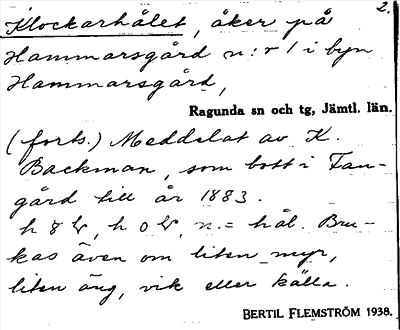 2.
Klockarhålet, åker på
Hammarsgård n:r 1 i byn
Hammarsgård,
Ragunda sn och tg, Jämtl. län.
(forts.) Meddelat av K.
Backman, som bott i Fan-
gård till år 1883.
h, h, n. = hål. Bru-
kas även om liten myr,
liten äng, vik eller källa.
BERTIL FLEMSTRÖM 1938.